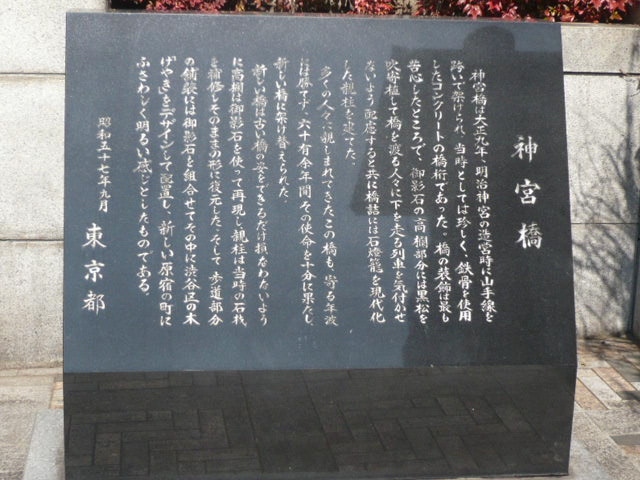 神宮橋
神宮橋は大正九年、明治神宮の造営時に山手線を
跨いで架けられ、当時としては珍しく、鉄骨を使用
したコンクリートの橋桁であった。橋の装飾は最も
苦心したところで、御影石の高欄部分には黒松を
吹寄植して橋を渡る人々に下を走る列車を気付かせ
ないよう配慮すると共に橋詰には石燈籠を現代化
した親柱を建てた。
多くの人々に親しまれてきたこの橋も、寄る年波
には勝てず、六十有余年間その使命を十分に果たし、
新しい橋に架け替えられた。
新しい橋は古い橋の姿をできるだけ損なわないよう
に高欄は御影石を使って再現し、親柱は当時の石材
を補修しそのままの形に復元した。そして歩道部分
の舗装には御影石を組合せてその中に渋谷区の木
けやきをデザインして配置し、新しい原宿の町に
ふさわしく明るい感じとしたものである。
昭和五十七年九月
東京都